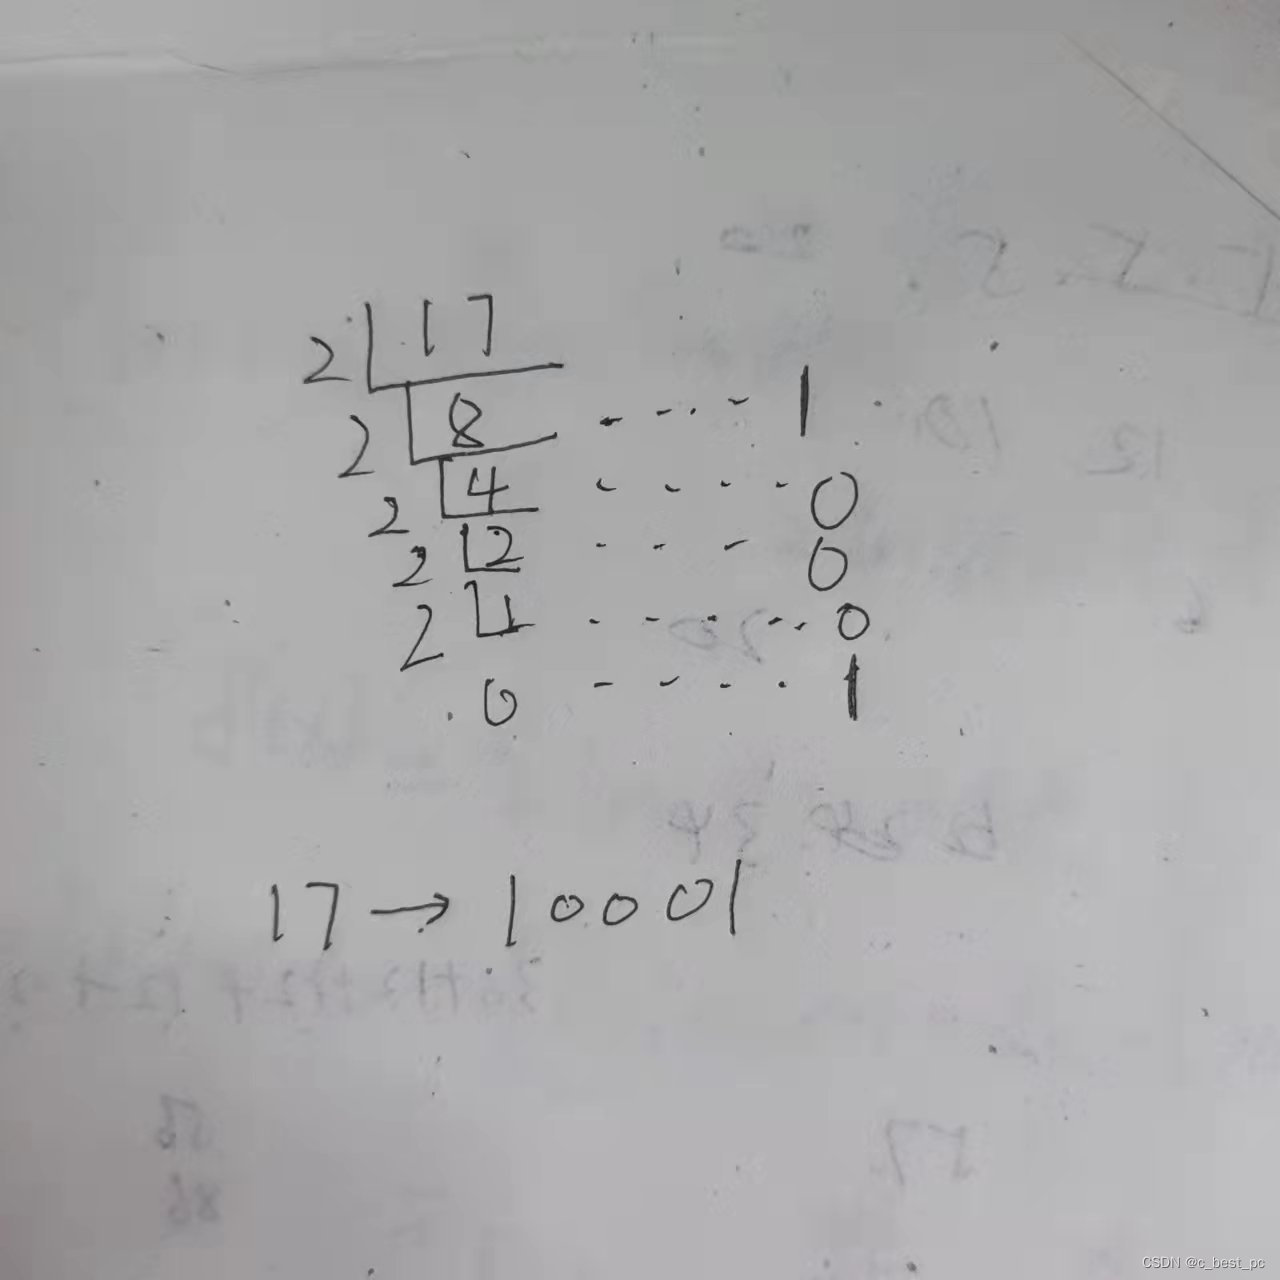 2 17
2 8 ----- 1
2 4 ---- 0
2 2 --- 0
2 1 ------ 0
0 ---- 1
17 → 10001
CSDN @c_best_pc